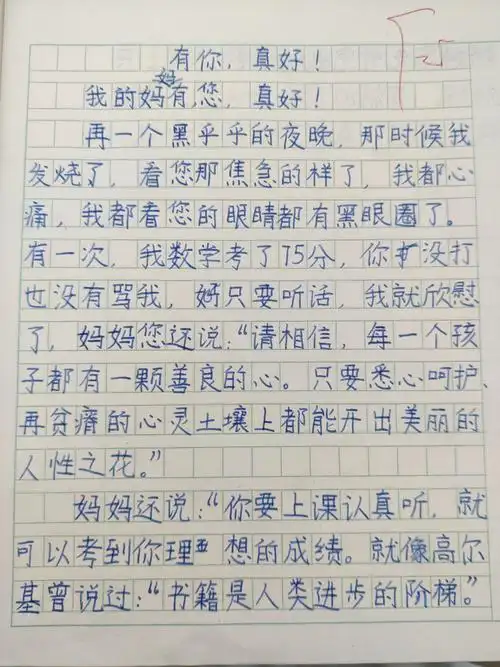 有你，真好！
我的妈妈有您，真好！
再一个黑乎乎的夜晚，那时候我
发烧了，看您那焦急的样了，我都心
痛，我都看您的眼睛都有黑眼圈了。
有一次，我数学考了75分，你扩没打
也没有骂我，好只要听话，我就欣慰
了，妈妈您还说：“请相信，每一个孩
子都有一颗善良的心。只要悉心呵护、
再贫瘠的心灵土壤上都能开出美丽的
人性之花。”
妈妈还说：“你要上课认真听，就
可以考到你理想的成绩。就像高尔
基曾说过：“书籍是人类进步的阶梯。”